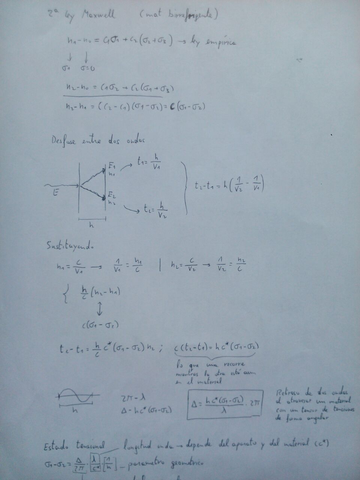 2ª by Maxwell (mat birrefringente)
n₁-n₀ = C₁σ₁ + C₂(σ₂+σ₃) → ley empírica
n₂-n₀ = C₁σ₂ + C₂(σ₁+σ₃)
n₂-n₁ = (C₂-C₁)(σ₁-σ₂) = C(σ₁-σ₂)
Desfase entre dos ondas
E₁
t₁ = h/V₁
E
E₂
t₂ = h/V₂
t₂-t₁ = h(1/V₂ - 1/V₁)
h
Sustituyendo
n₁ = C/V₁ → 1/V₁ = n₁/C | n₂ = C/V₂ → 1/V₂ = n₂/C
h/C (n₂-n₁)
C(σ₁-σ₂)
lo que una recorre
mientras la otra aún
en el material
h
2π - λ
Δ - hc*(σ₁-σ₂)
Δ = hc*(σ₁-σ₂)/λ 2π
Retraso de dos ondas
al atravesar un material
con un campo de tensiones
de forma angular
Estado tensional
longitud onda → depende del aparato y del material (c*)
parámetro geométrico